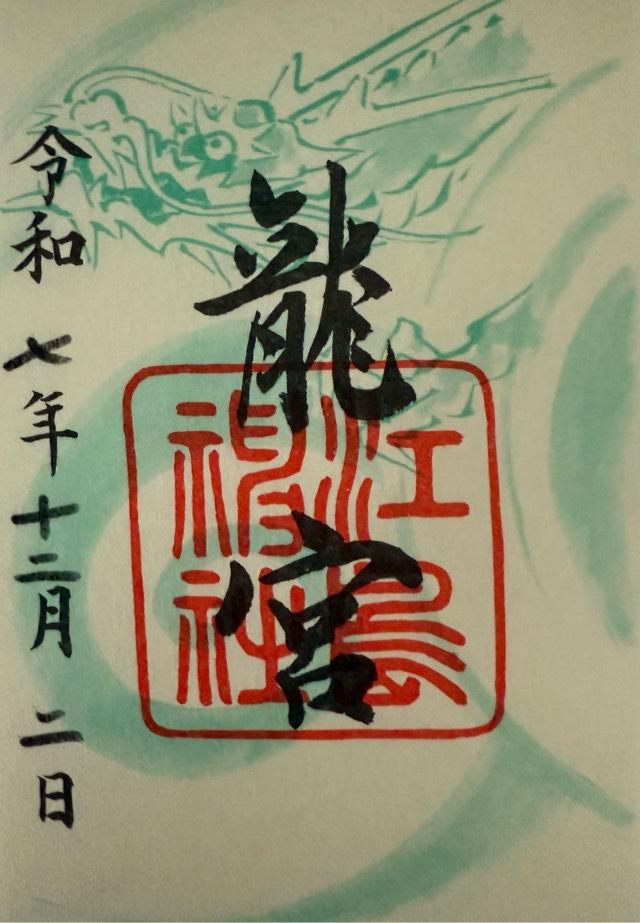 龍宮
江島
神社
令和七年十二月二日